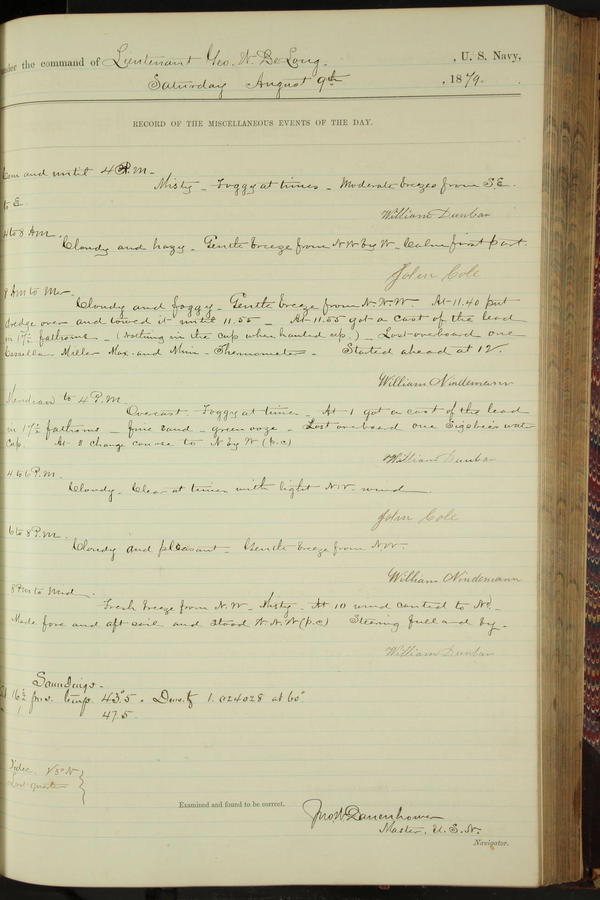 under the command of Lieutenant Geo. W. De Long. , U. S. Navy,
Saturday August 9th , 1879.
RECORD OF THE MISCELLANEOUS EVENTS OF THE DAY.
Com and until 4 A.M.
Misty - Foggy at times - Moderate breezes from S.E.
to E
William Dunbar
4 to 8 A.M.
Cloudy and hazy - Gentle breeze from NW by W - Calm first part.
John Cole
8 A.M to Mer
Cloudy and foggy - Gentle breeze from N.N.W. At 11.40 put
dredge over and towed it until 11.55 - At 11.55 got a cast of the lead
in 17½ fathoms - (Nothing in the cup when hauled up.) - Lost overboard one
Casella Miller Max. and Min. Thermometer - Started ahead at 12.
William Nindemann
Meridian to 4 P.M
Overcast - Foggy at times - At 1 got a cast of the lead
in 17½ fathoms - fine sand - green ooze - Lost overboard one Sigsbee's water
cup. At 2 change course to N by W (p.c)
William Dunbar
4 to 6 P.M.
Cloudy - Clear at times with light N.W. wind
John Cole
6 to 8 P.M.
Cloudy and pleasant - Gentle breeze from N.W.
William Nindemann
8 P.M to Mid
Fresh breeze from N.W - Misty - At 10 wind canted to
Made fore and aft sail and stood W.N.W (p.c) Steering full and by -
William Dunbar
Soundings -
16½ fms. temp. 43°5 . Density 1.024028 at 60°
1 47.5
Index
last quarter
Examined and found to be correct.
Jno W Danenhower
Master, U.S.N.
Navigator.